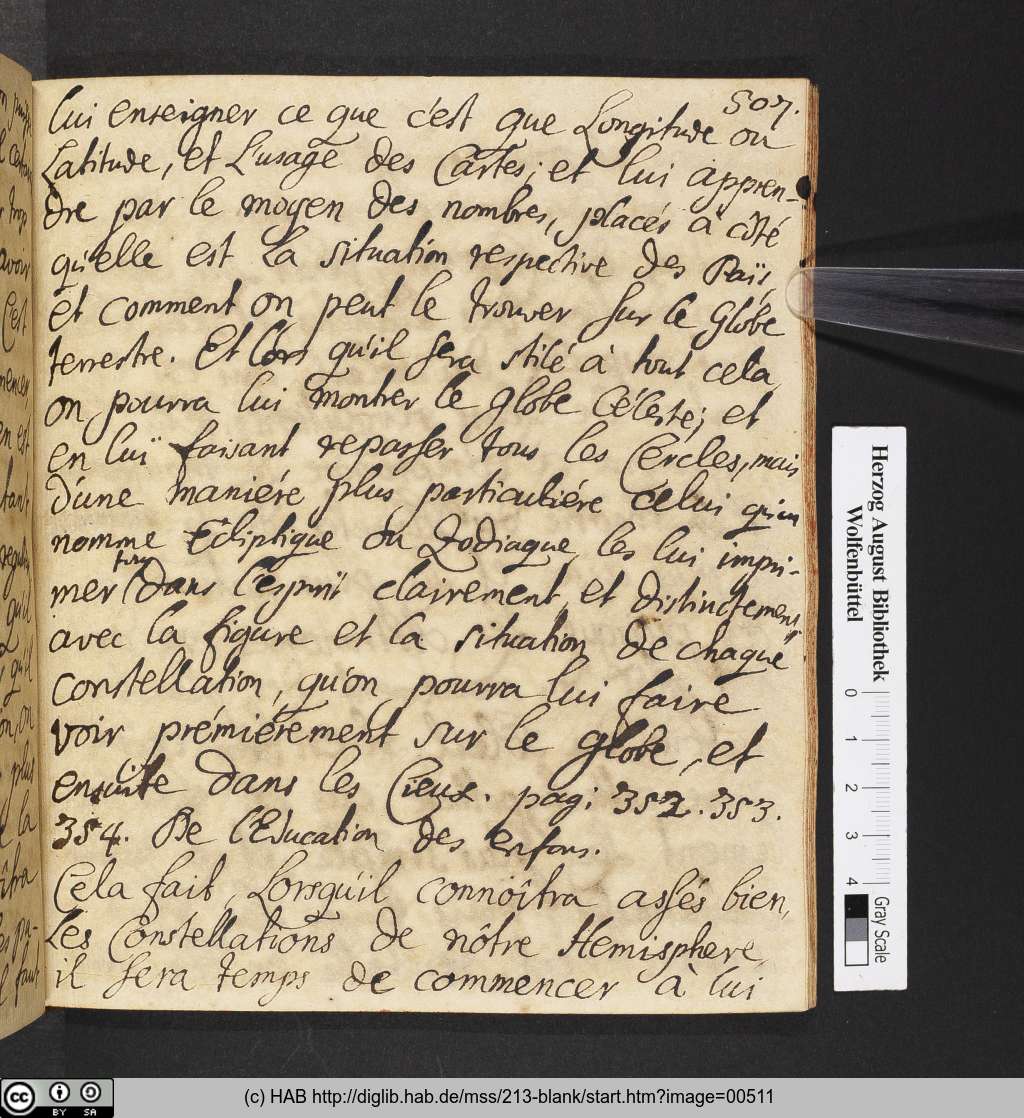 507.
lui enseigner ce que c'est que Longitude ou
Latitude, et L'usage des Cartes; et lui appren-
dre par le moyen des nombres, placés à côté
qu'elle est La situation respective des Païs,
et comment on peut le trouver sur le Globe
terrestre. Et Lors qu'il sera stilé à tout cela,
on pourra lui montrer le globe Céleste; et
en luï faisant repasser tous les Cercles, mais
d'une maniére plus particuliére celui qu'on
nomme Ecliptique ou Zodiaque, les lui impri-
mer tous dans l'esprit clairement et distinctement,
avec la figure et la situation de chaque
constellation, qu'on pourra lui faire
voir prémiérement sur le globe, et
ensuite dans les Cieux. pag: 352. 353.
354. De l'Education des enfans.
Cela fait, Lorsqu'il connoîtra assés bien,
Les Constellations de nôtre Hemisphere,
il sera temps de commencer à lui
Herzog August Bibliothek
Wolfenbüttel
0 1 2 3 4
Gray Scale
cc BY SA
(c) HAB http://diglib.hab.de/mss/213-blank/start.htm?image=00511